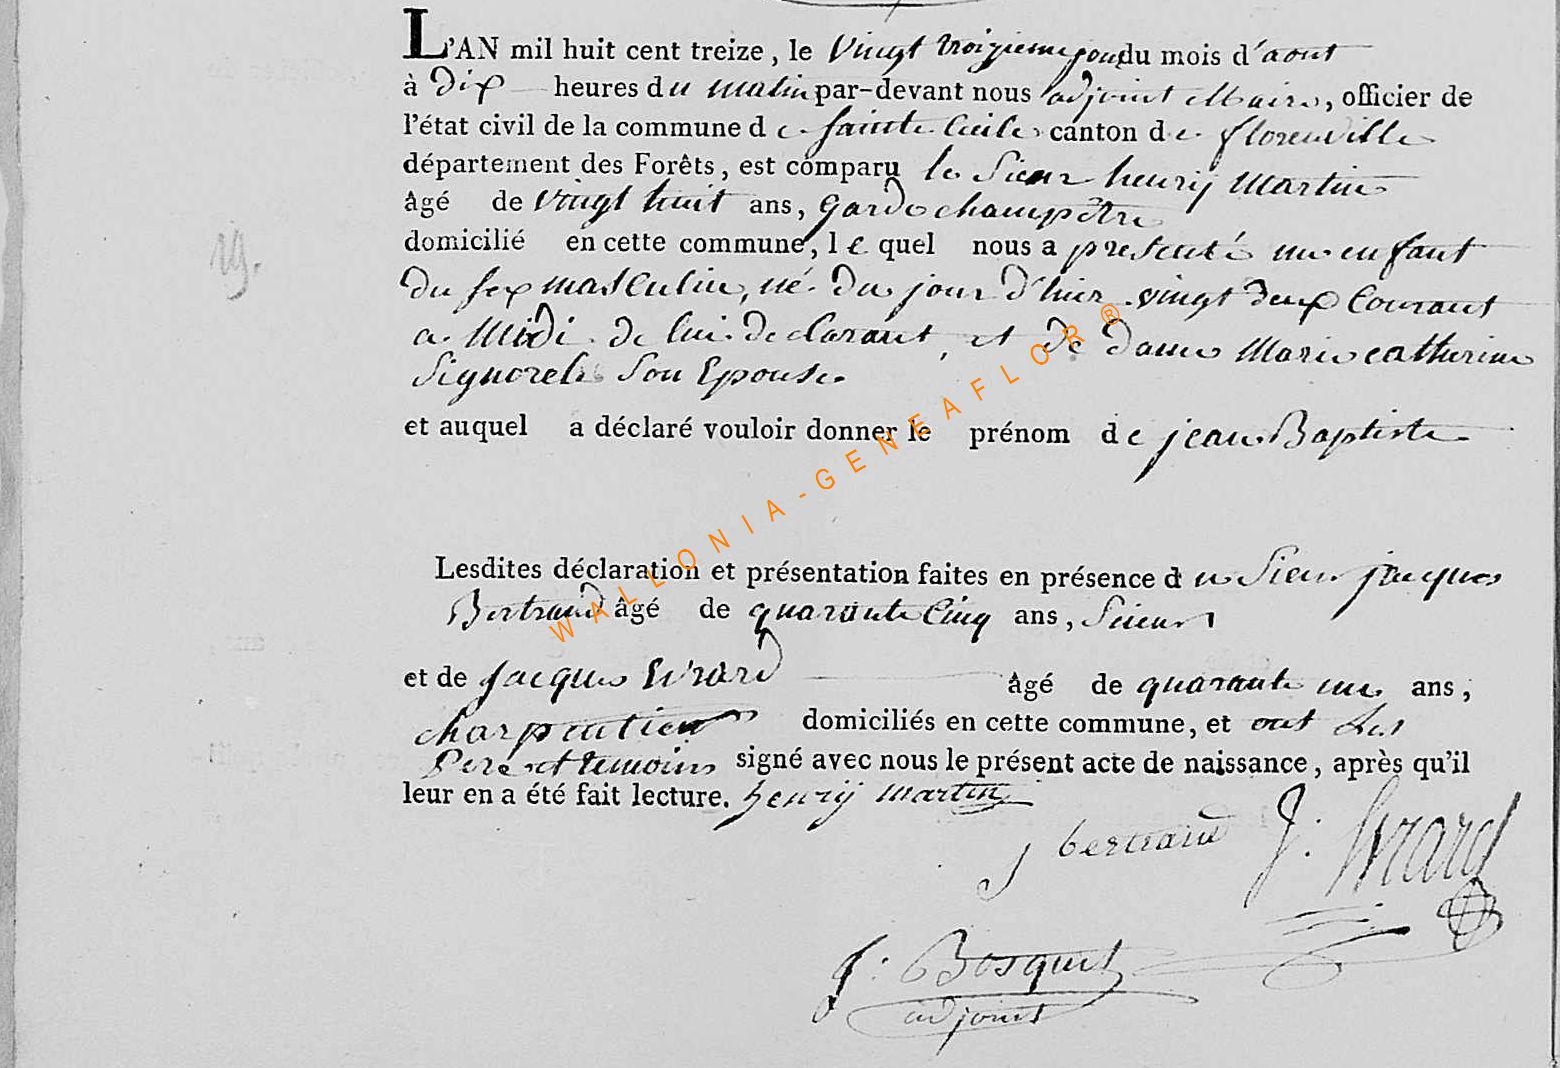 L'AN mil huit cent treize, le vingt troizieme jour du mois d'aout
à dix heures du matin par-devant nous adjoint Maire, officier de
l'état civil de la commune de Sainte Cecile canton de florenville
département des Forêts, est comparu le Sieur henrij Martin
âgé de vingt huit ans, Garde champêtre
domicilié en cette commune, lequel nous a presenté un enfant
du sex masculin, né du jour d'hier vingt deux Courant
a Midi de lui declarant, et de dame Marie catherine
Signorel Son Epouse
et auquel a déclaré vouloir donner le prénom de jean Baptiste
Lesdites déclaration et présentation faites en présence du Sieur jacques
Bertrand âgé de quarante Cinq ans, Scieur
et de Jacques Evrard âgé de quarante un ans,
charpentier domiciliés en cette commune, et ont Les
Pere et temoins signé avec nous le présent acte de naissance, après qu'il
leur en a été fait lecture. henrij martin
J bertrand J: Evrard
J: Bosquet
adjoint
19.
WALLONIA-GENEAFLOR®